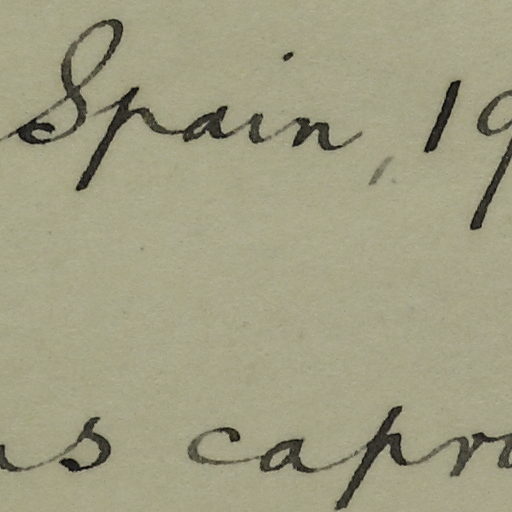 Spain, 19
s capr